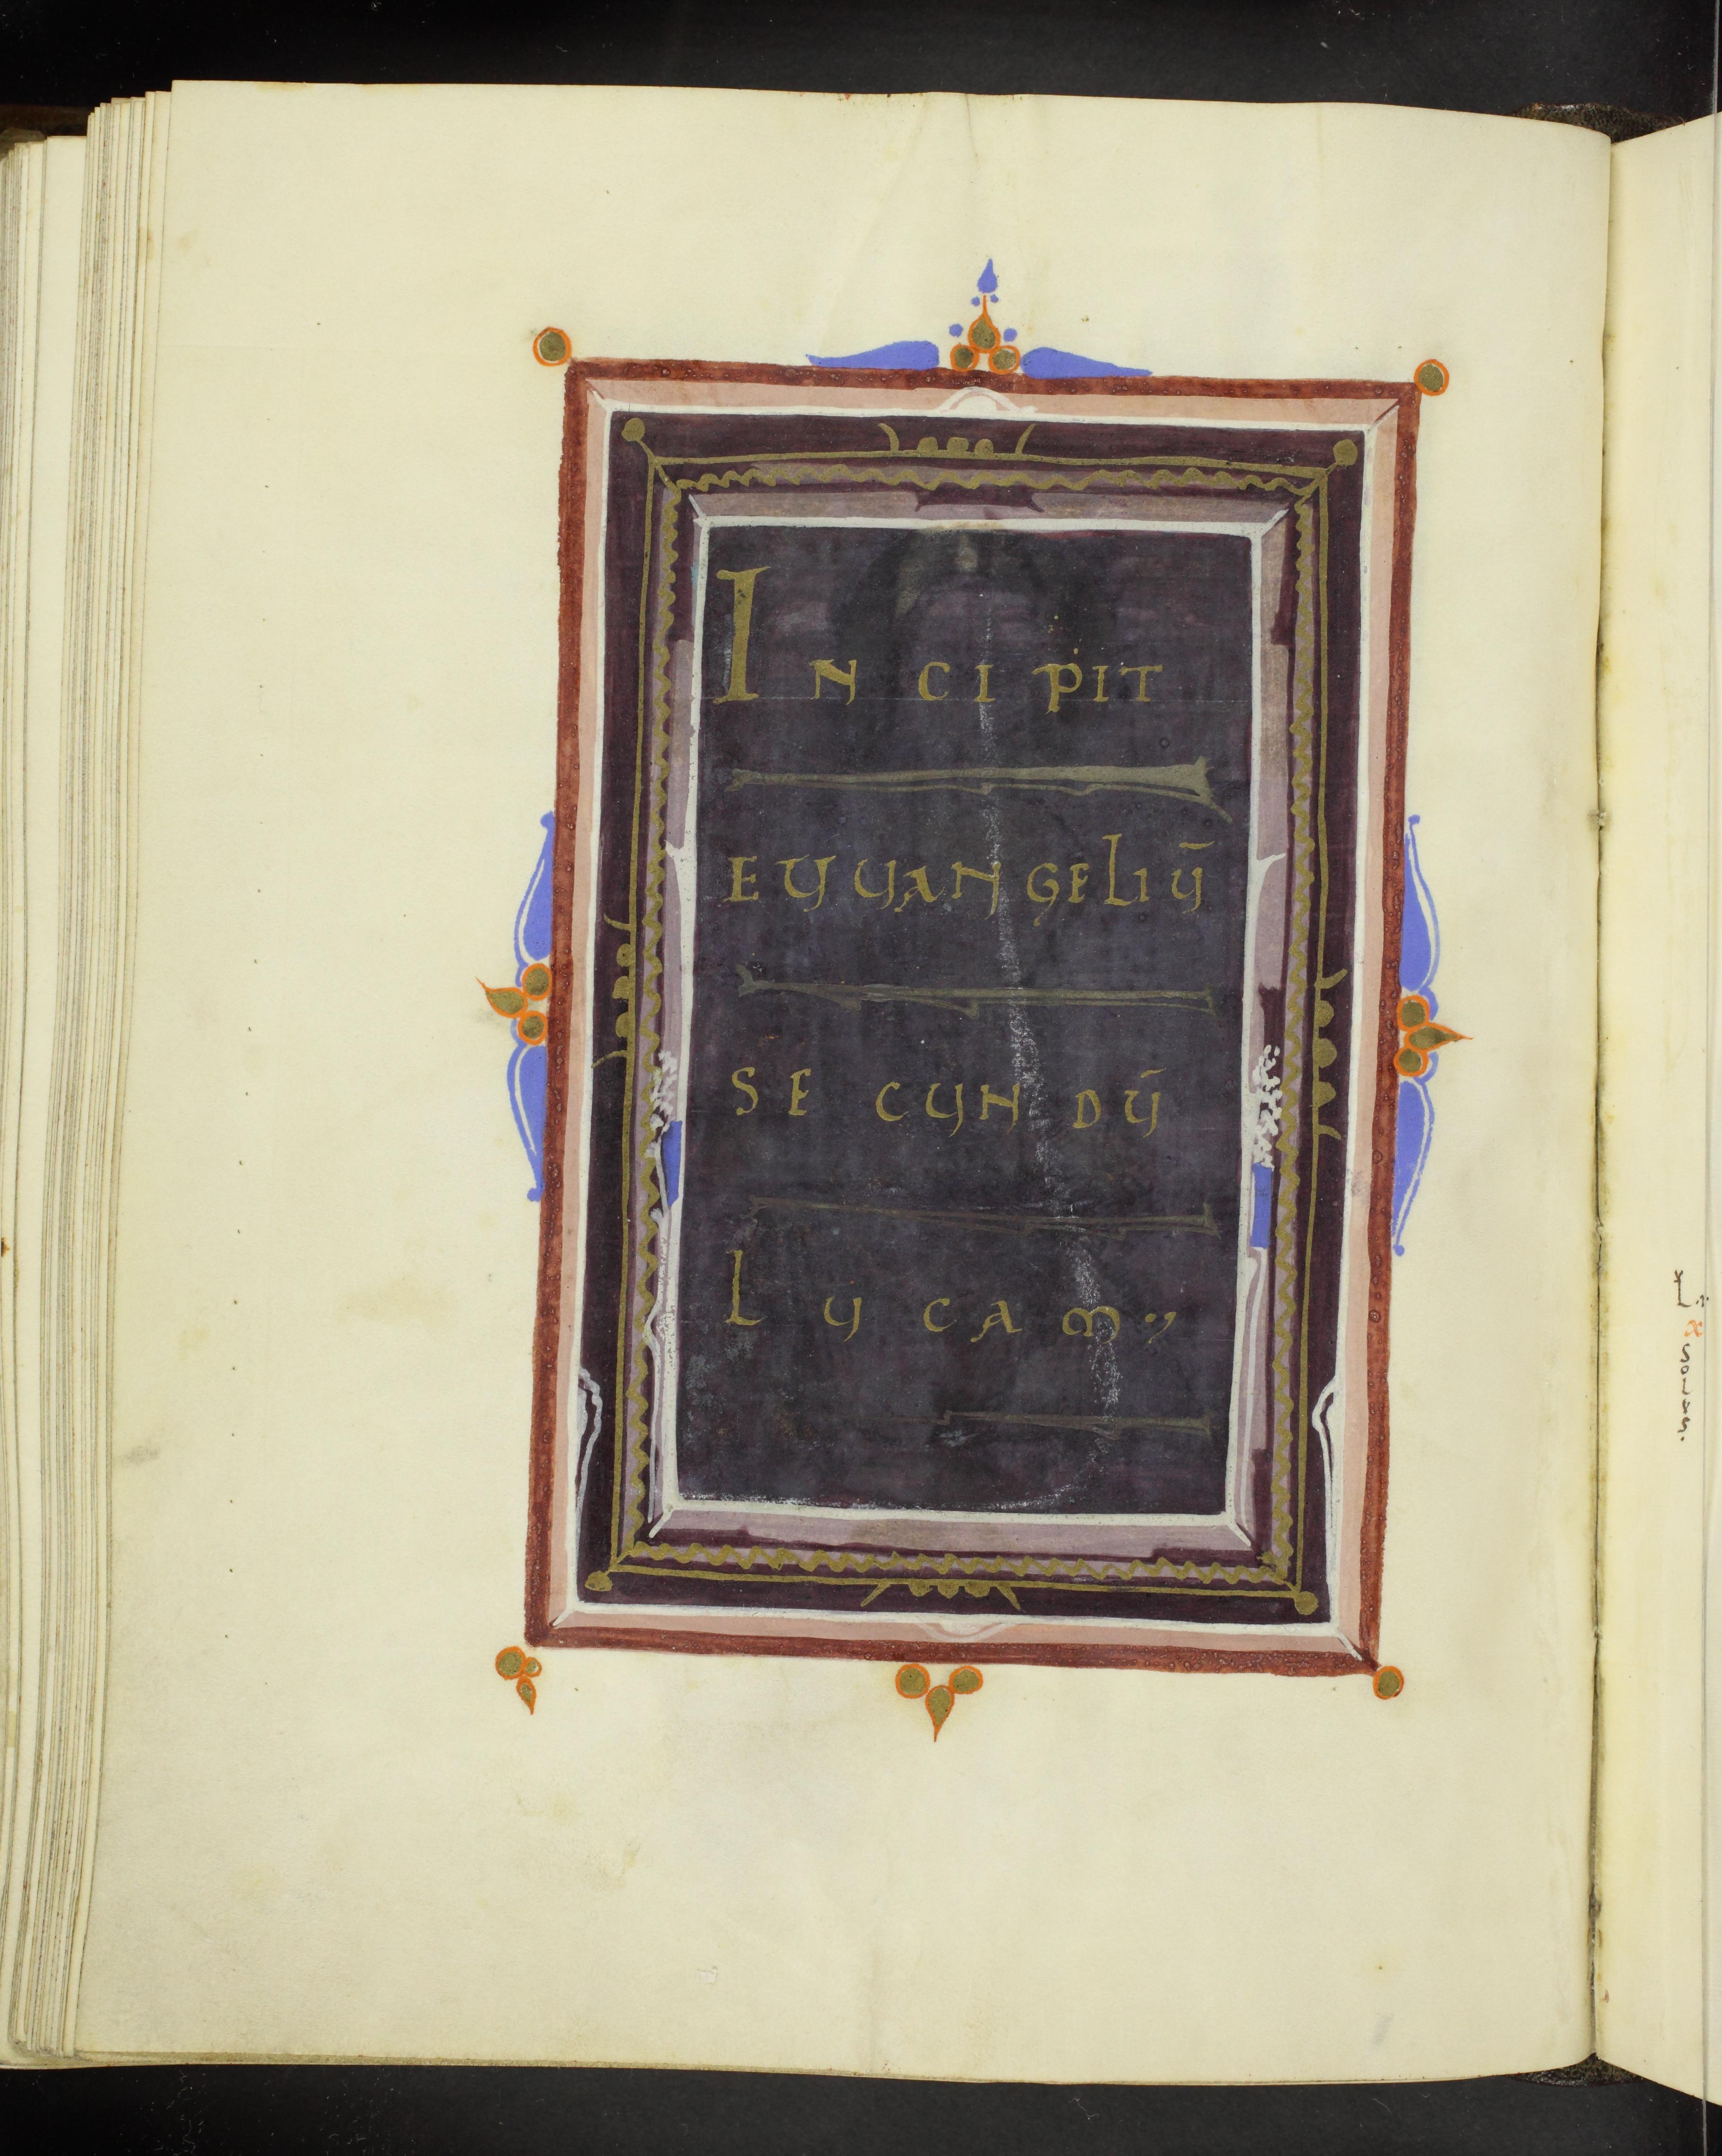 INCIPIT
EUUANGELIŪ
SECUNDŪ
LUCAM
L. x
SOLUS.